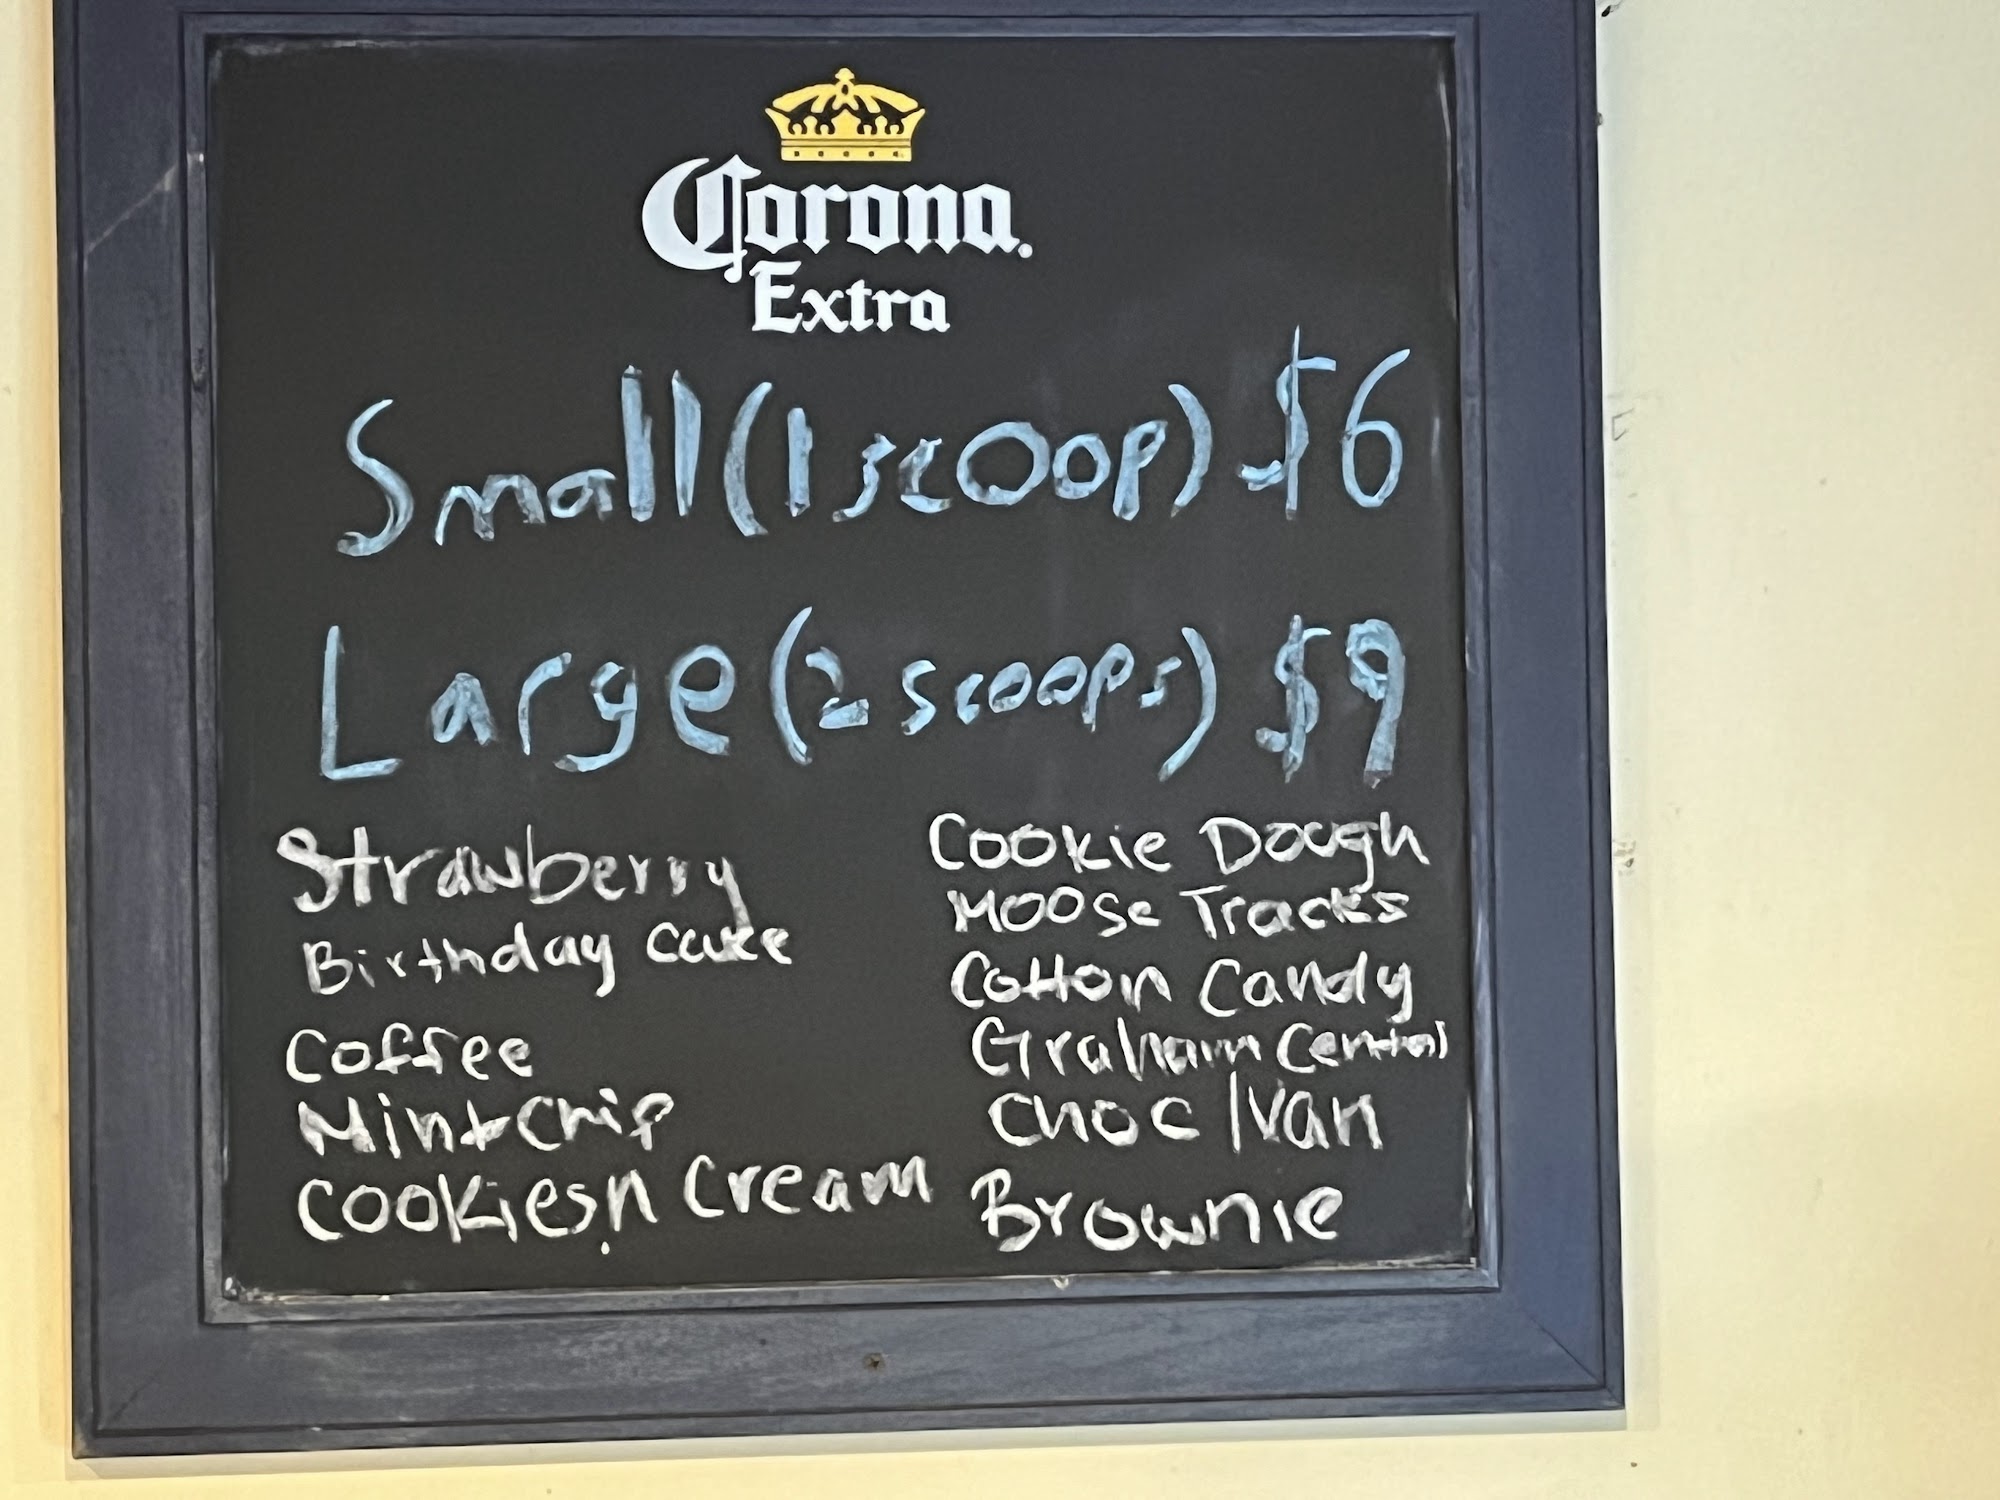 Corona.
Extra
Small (1 scoop) $6
Large (2 scoops) $9
Strawberry
Birthday Cake
Coffee
Mint Chip
Cookiesn Cream
Cookie Dough
Moose Tracks
Cotton Candy
Graham Central
Choc / Van
Brownie